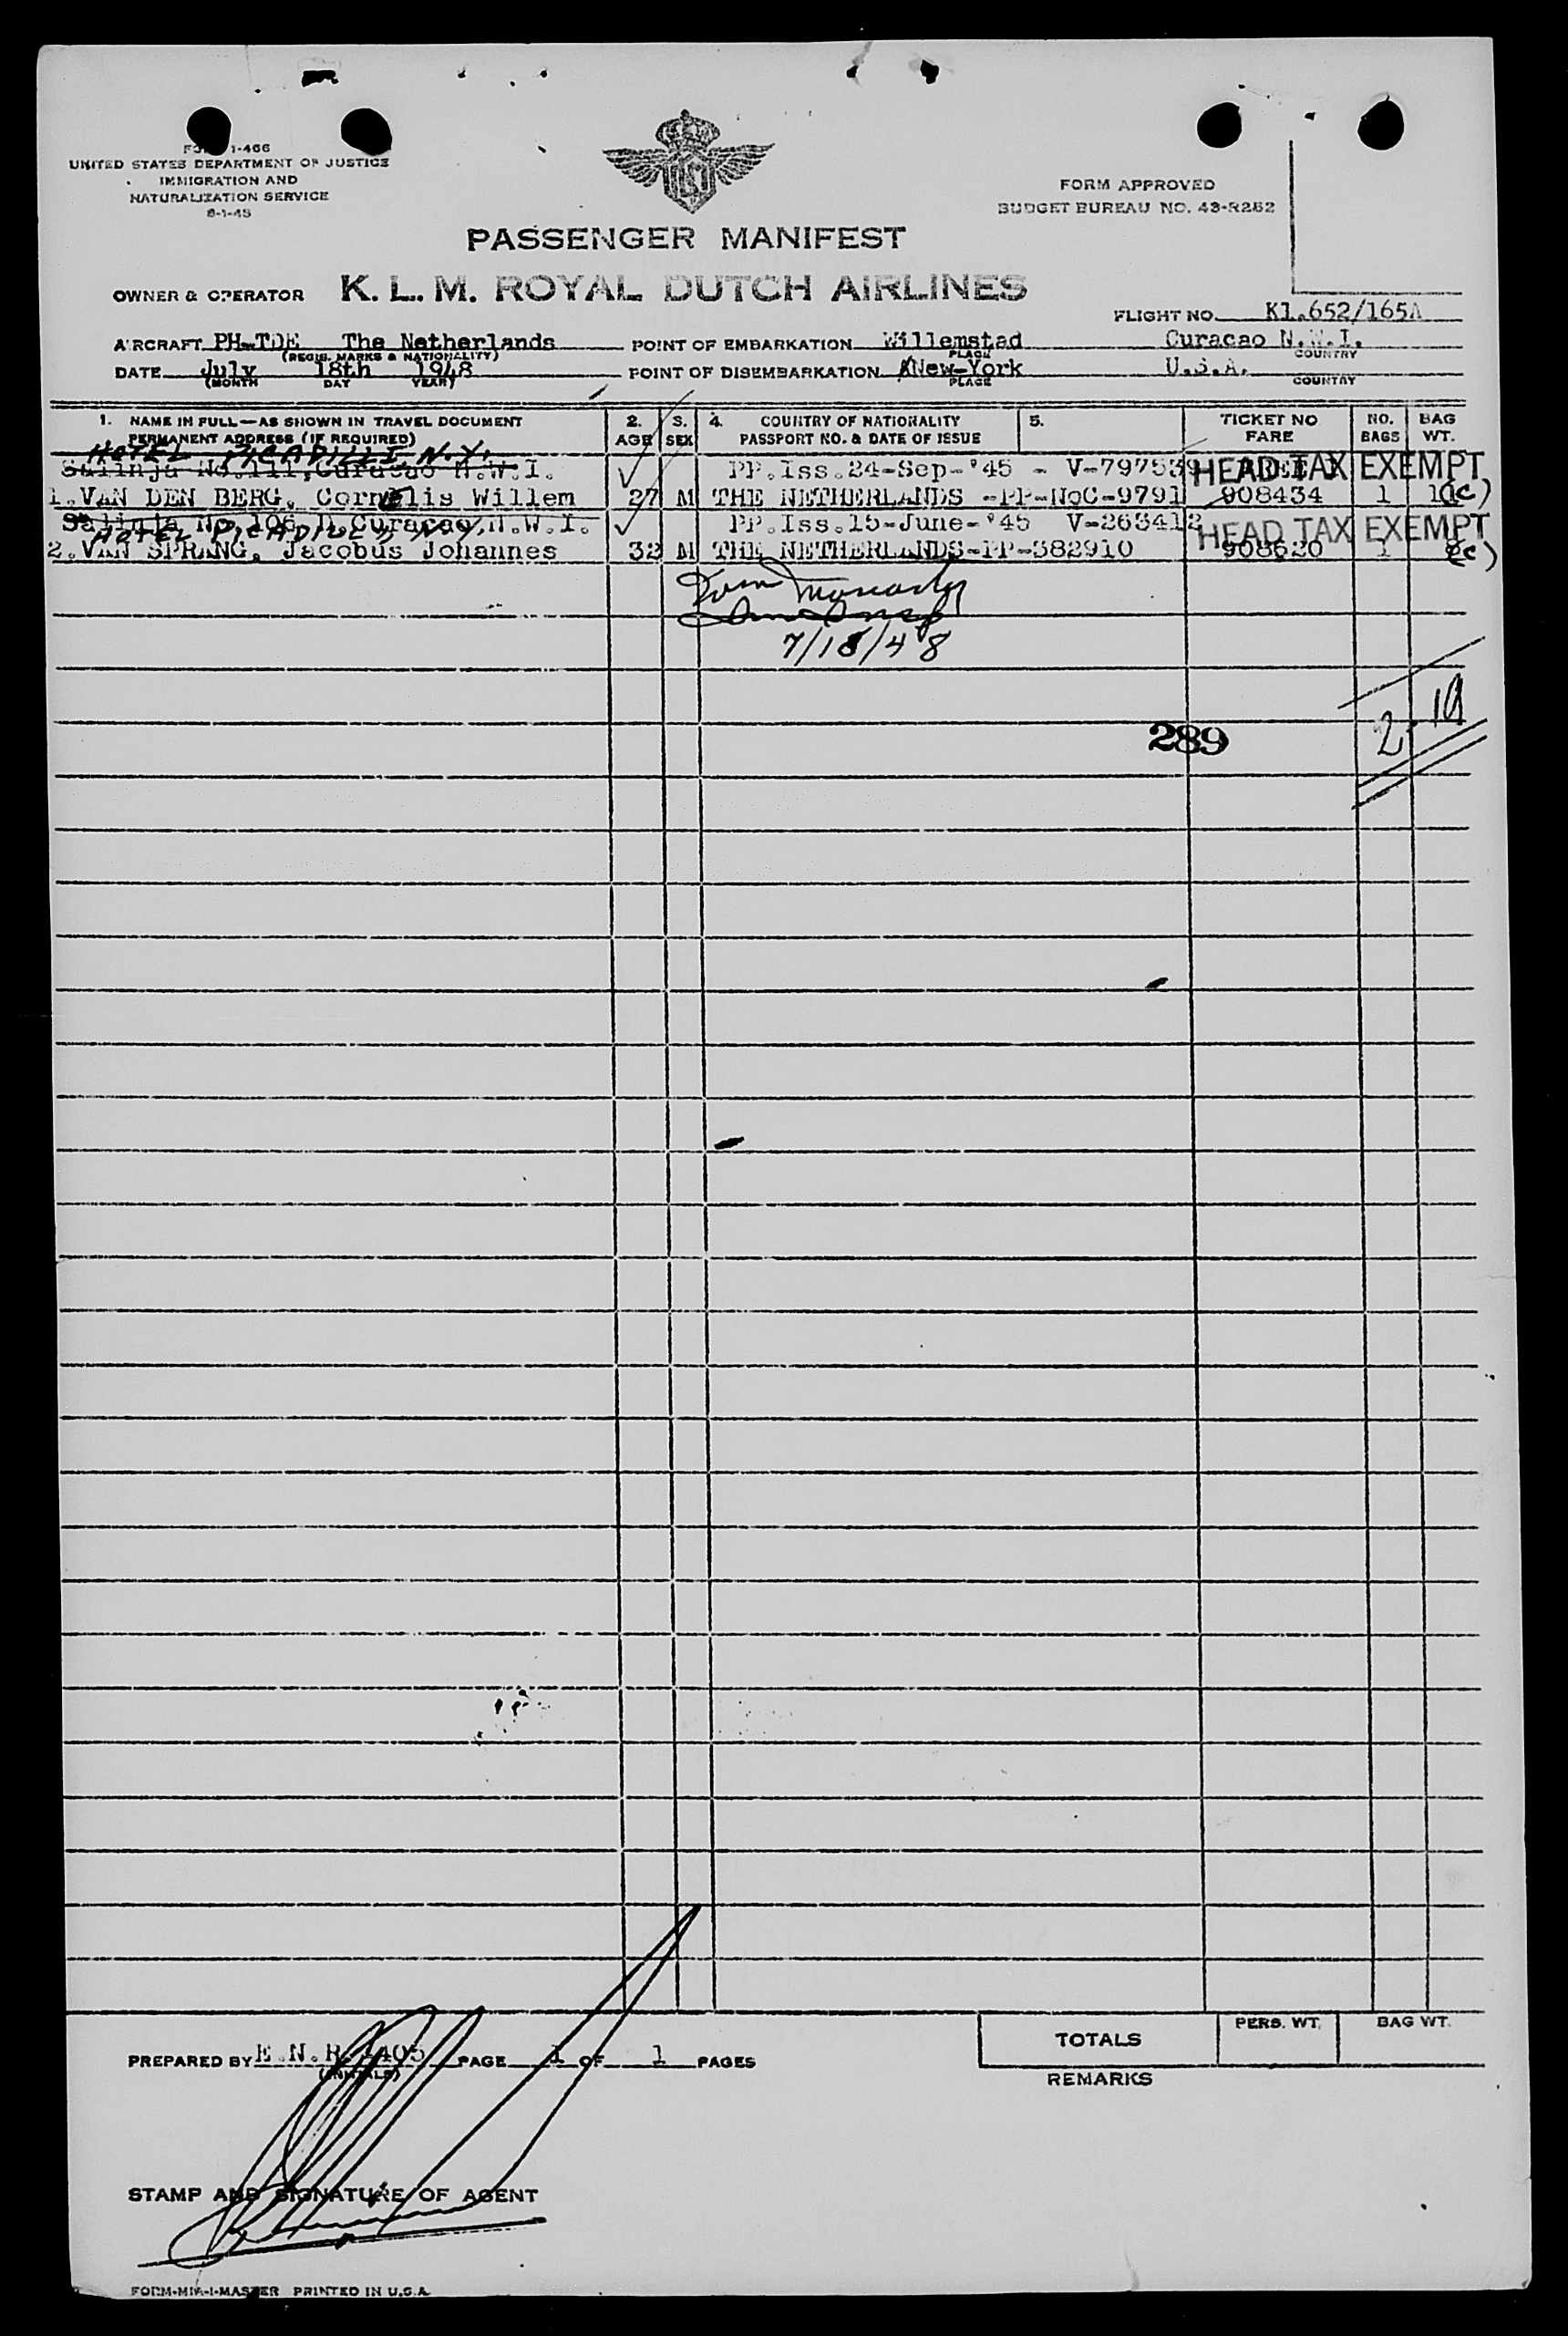 1-466
UNITED STATES DEPARTMENT OF JUSTICE
IMMIGRATION AND
NATURALIZATION SERVICE
FORM APPROVED
BUDGET BUREAU NO. 43-R262
PASSENGER MANIFEST
OWNER & OPERATOR K. L. M. ROYAL DUTCH AIRLINES
FLIGHT NO. Kl.652/165A
AIRCRAFT PH-TDE The Netherlands POINT OF EMBARKATION Willemstad Curacao N.W.I.
(REGIS. MARKS & NATIONALITY) PLACE COUNTRY
DATE July 18th 1948 POINT OF DISEMBARKATION New-York U.S.A.
(MONTH DAY YEAR) PLACE COUNTRY
1. NAME IN FULL—AS SHOWN IN TRAVEL DOCUMENT 2. 3. 4. COUNTRY OF NATIONALITY 5. TICKET NO NO. BAG
PERMANENT ADDRESS (IF REQUIRED) AGE SEX PASSPORT NO. & DATE OF ISSUE FARE BAGS WT.
HOTEL PICADILLI N.Y.
Salinja No.111,Curacao N.W.I. PP.Iss.24-Sep-'45 - V-797539 HEAD TAX EXEMPT
1.VAN DEN BERG, Cornelis Willem 27 M THE NETHERLANDS -PP-NoC-9791 908434 1 10(c)
Salinja No.106 Curacao N.W.I. PP.Iss.15-June-'45 V-263412 HEAD TAX EXEMPT
HOTEL PICADILLI N.Y.
2.VAN SPRANG, Jacobus Johannes 32 M THE NETHERLANDS-PP-382910 908620 1 (c)
7/18/48
289
2
PREPARED BY E.N.R. 1405 PAGE 1 OF 1 PAGES
(INITIALS)
TOTALS PERS. WT. BAG WT.
REMARKS
STAMP AND SIGNATURE OF AGENT
PRINTED IN U.S.A.